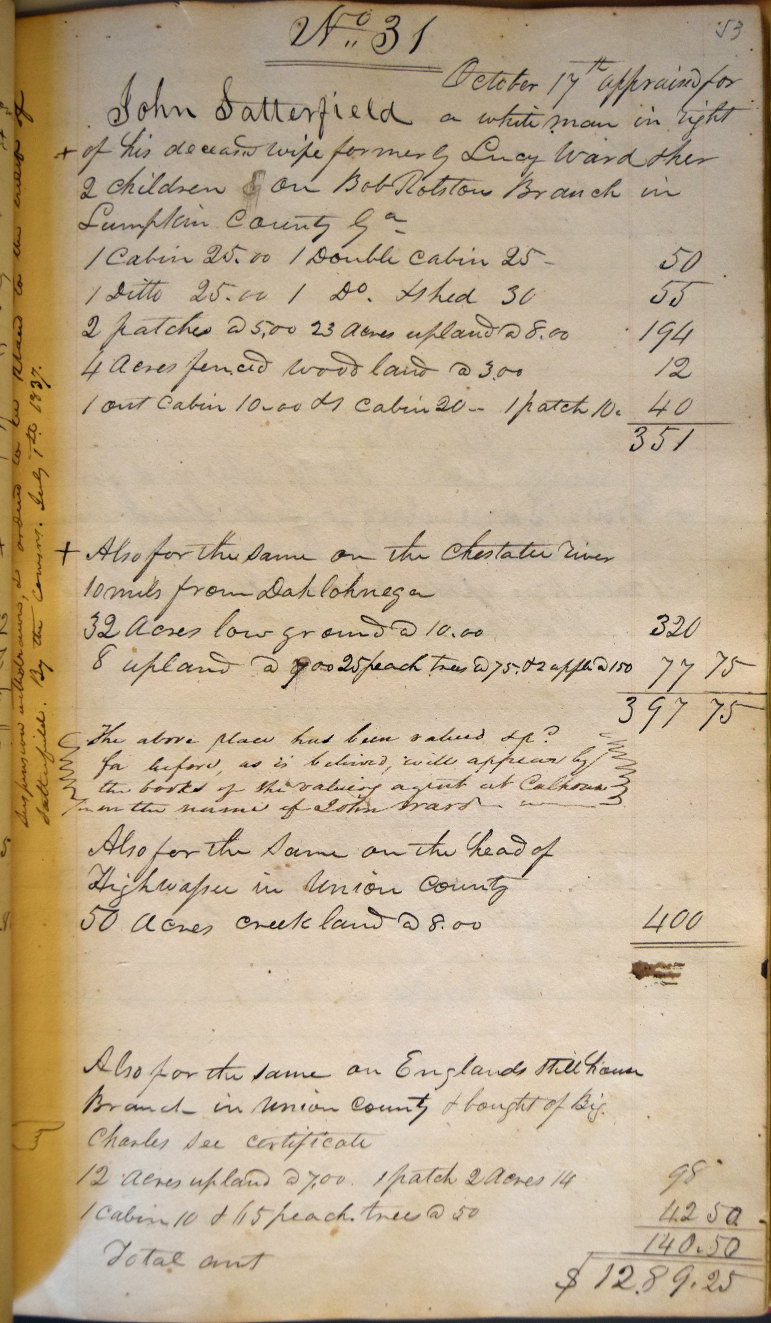 53
No 31
October 17th appraised for
John Satterfield a white man in right
+ of his deceased wife formerly Lucy Ward & her
2 children on Bob Rolston Branch in
Lumpkin County Ga
1 Cabin 25.00 1 Double cabin 25- 50
1 Ditto 25.00 1 Do. & shed 30 55
2 patches @ 5,00 23 Acres upland @ 8.00 194
4 Acres fenced wood land @ 3.00 12
1 out Cabin 10.00 & 1 cabin 20- 1 patch 10. 40
351
+ Also for the same on the Chestatee river
10 mils from Dahlohnega
32 Acres low ground @ 10.00 320
8 upland @ 25 peach trees @ 75. & 2 apple @ 150 77 75
397 75
The above place has been valued & pd
for before, as is believed, will appear by
the books of the valuing agent at Calhoun
in the name of John Ward
Also for the same on the head of
Highwassee in Union County
50 Acres creek land @ 8.00 400
Also for the same on Englands still house
Branch in Union County & bought of Big
Charles See certificate
12 Acres upland @ 7,00. 1 patch 2 Acres 14 98
1 cabin 10 & 65 peach trees @ 50 42 50
140.50
Total amt $1289.25
Suspension withdrawn, & ordered to be placed to the credit of
Satterfield. By the Comrs. July 1th 1837.